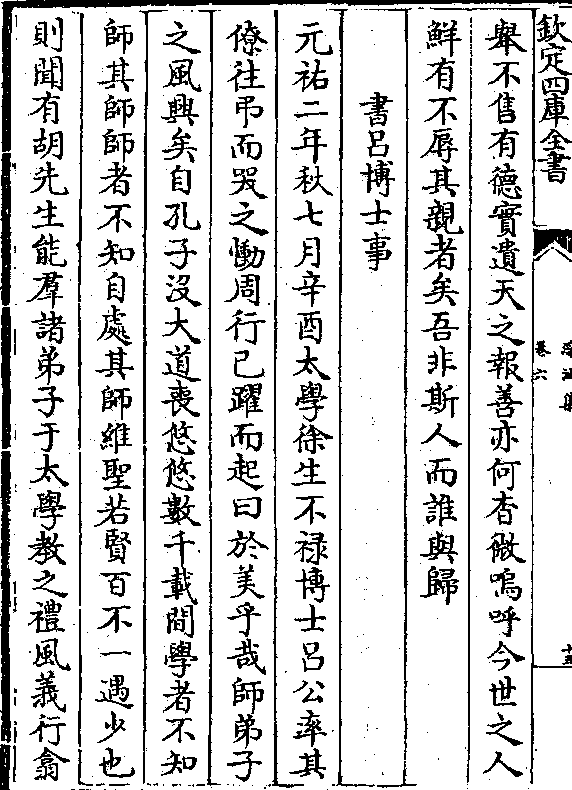 欽定四庫全書
浮沚集
卷六
十五
舉不售有德實遺天之報善亦何杳微嗚呼今世之人
鮮有不辱其親者矣吾非斯人而誰與歸
書呂博士事
元祐二年秋七月辛酉太學徐生不禄博士呂公率其
僚往弔而哭之慟周行已躍而起曰於美乎哉師弟子
之風興矣自孔子沒大道喪悠悠數千載間學者不知
師其師師者不知自處其師維聖若賢百不一遇少也
則聞有胡先生能羣諸弟子于太學教之禮風義行翕